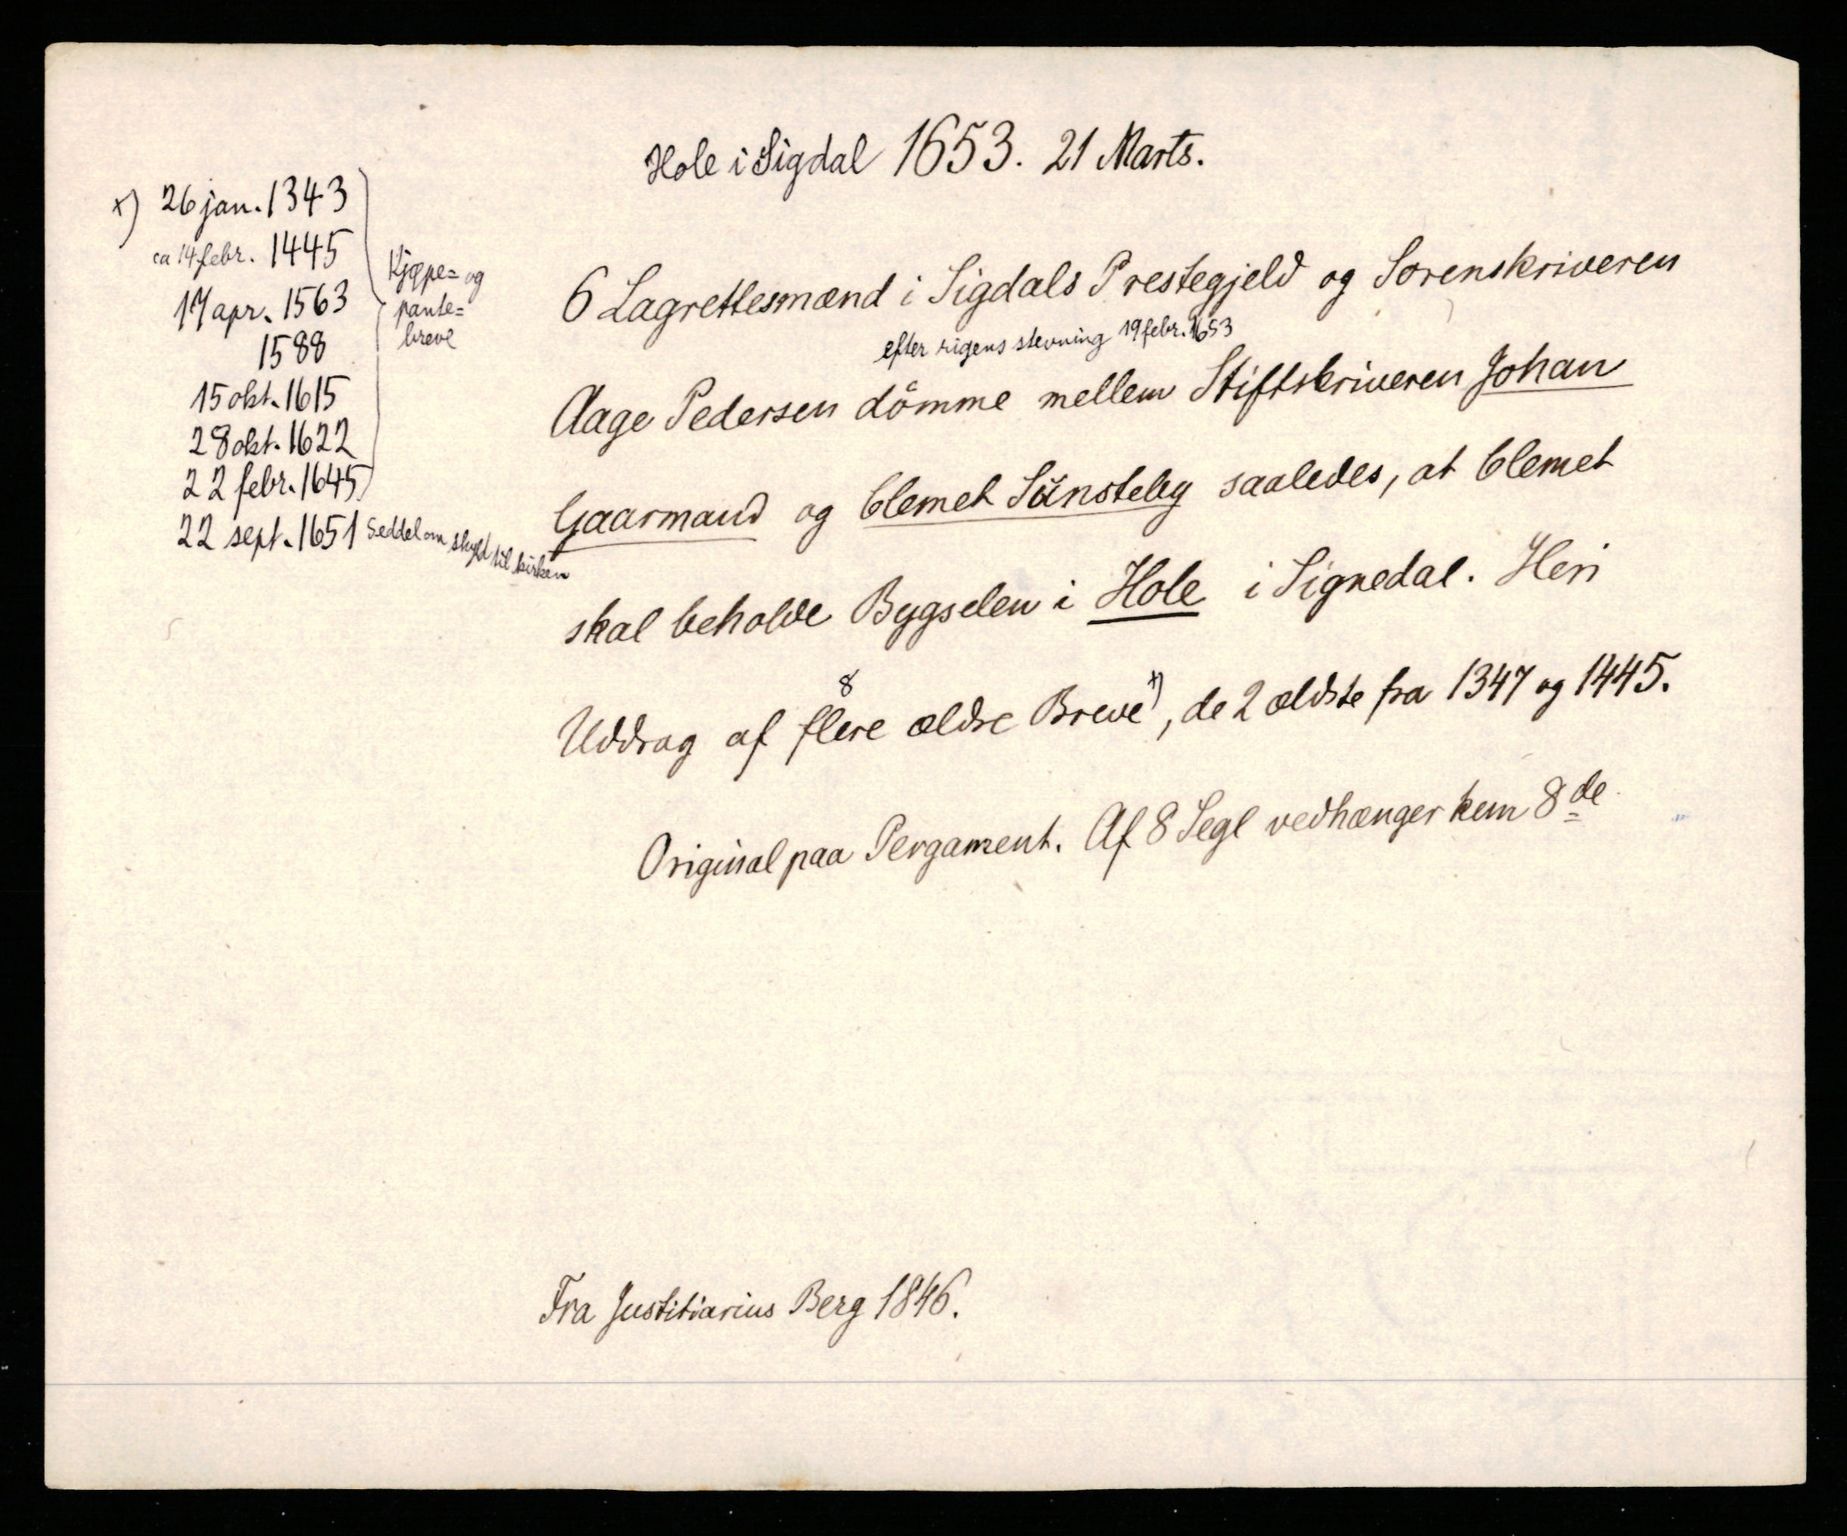 Hole i Sigdal 1653. 21 Marts.
x) 26 jan. 1343
ca 14 febr. 1445
17 apr. 1563
1588
15 okt. 1615
28 okt. 1622
22 febr. 1645
Kjøpe= og
pante=
breve
22 sept. 1651 Seddel om skyld til kirken
6 Lagrettesmænd i Sigdals Prestegjeld og Sorenskriveren
efter rigens stevning 19 febr. 1653
Aage Pedersen dömme mellem Stiftskriveren Johan
Gaarmand og Clemet Sünsteby saaledes, at Clemet
skal beholde Bygselen i Hole i Signedal. Heri
8
Uddrag af flere ældre Breve x), de 2 ældste fra 1347 og 1445.
Original paa Pergament. Af 8 Segl vedhænger kun 8de
Fra Justitiarius Berg 1846.